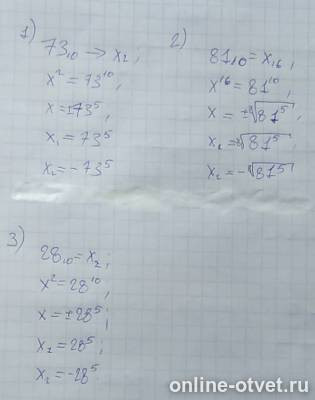 1) 73₁₀ → x₂;
x² = 73¹⁰,
x = ±73⁵,
x₁ = 73⁵
x₂ = -73⁵
2) 81₁₀ = x₁₆;
x¹⁶ = 81¹⁰,
x = ±⁸√81⁵,
x₁ = ⁸√81⁵,
x₂ = -⁸√81⁵
3) 28₁₀ = x₂;
x² = 28¹⁰,
x = ±28⁵;
x₁ = 28⁵;
x₂ = -28⁵
online-otvet.ru